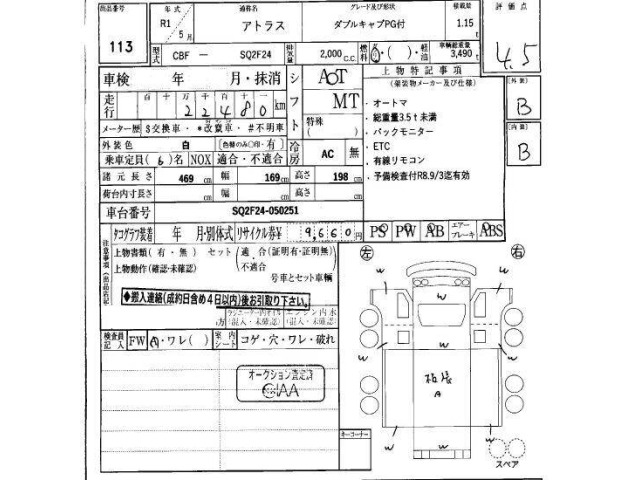 出品番号 113
年式 R1/5月
通称名 アトラス
グレード及び形状 ダブルキャブPG付
積載量 1.15 t
評価点 4.5
型式 CBF － SQ2F24
排気量 2,000 C.C.
燃料 G・( )・軽油
車輌総重量 3,490
車検 年 月・抹消
シフト AOT MT
特殊 ( )
走行 百 十 万 千 百 十 一
22480 km
メーター歴 $交換車・*改竄車・#不明車
外装色 白 [色替のみ〇印・有]
冷房 AC 無
乗車定員 (6)名 NOX 適合・不適合
諸元長さ 469 cm 幅 169 cm 高さ 198 cm
荷台内寸長さ cm 幅 cm 高さ cm
車台番号 SQ2F24-050251
上物特記事項
(架装物メーカー及び仕様)
・オートマ
・総重量3.5t未満
・バックモニター
・ETC
・有線リモコン
・予備検査付R8.9/3迄有効
[外装] B
[内装] B
PS PW AB エアーブレーキ ABS
タコグラフ装着 年 月・別体式 リサイクル券¥ 9,660円
注意事項
上物書類(有・無) セット(適合・(証明有・証明無)
上物動作(確認・未確認) (不適合
号車とセット車輌
◆搬入連絡(成約日含め4日以内)後お引取り下さい。
(混入・未確認) (混入・未確認)
検査員記入 FW A・ワレ( ) 室内シート コゲ・穴・ワレ・破れ
オークション査定済
キーコーナー
左 右
w w
w w
w w w
A
w w w
w
スペア